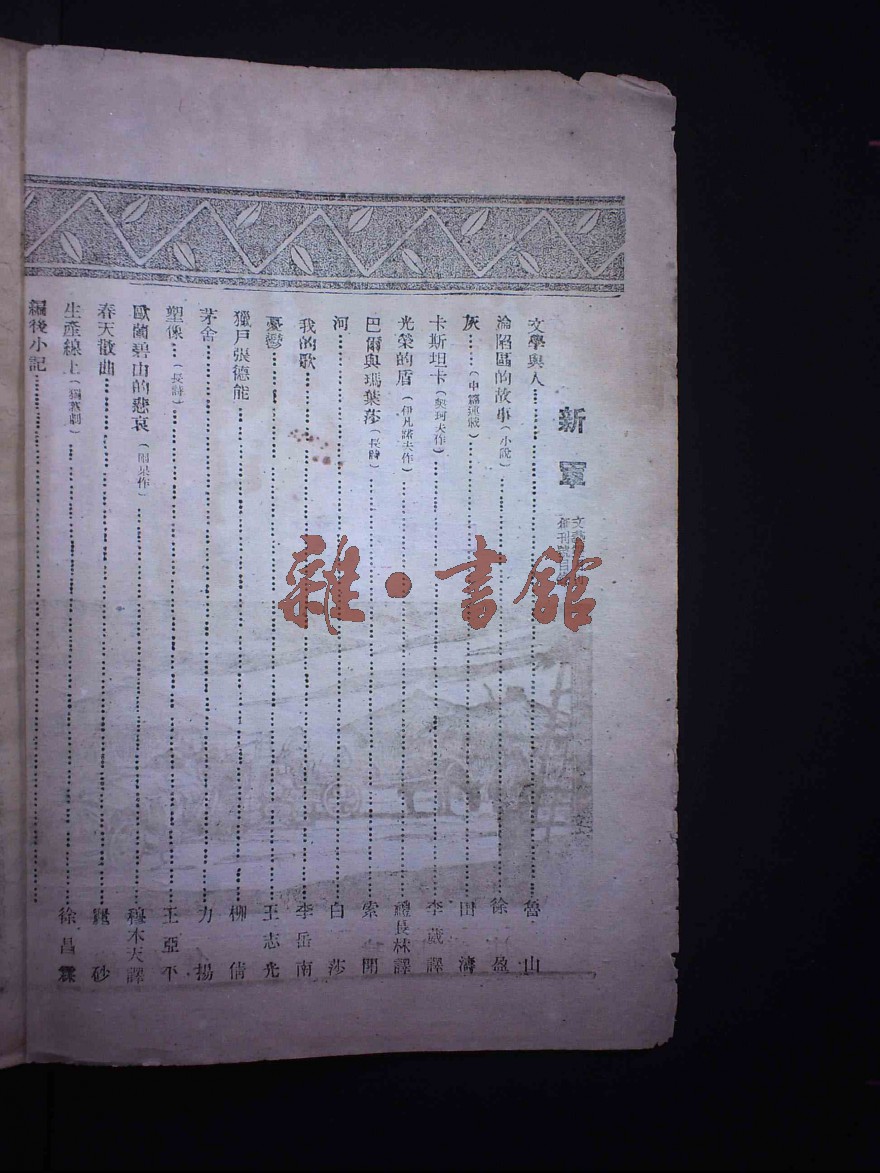 新軍
文藝
創刊號目
文學與人 魯山
淪陷區的故事（小說） 徐盈
灰（中篇連載） 田濤
卡斯坦卡（契珂夫作） 李葳譯
光榮的盾（伊凡諾夫作） 禮長林譯
巴爾與瑪葉莎（長詩） 索開
河 白莎
我的歌 李岳南
憂鬱 王志光
獵戶張德能 柳倩
茅舍 力揚
塑像（長詩） 王亞平
歐蘭碧山的悲哀（雨果作） 穆木天譯
春天散曲 砂
生產線上（獨幕劇） 徐昌霖
編後小記
雜·書館